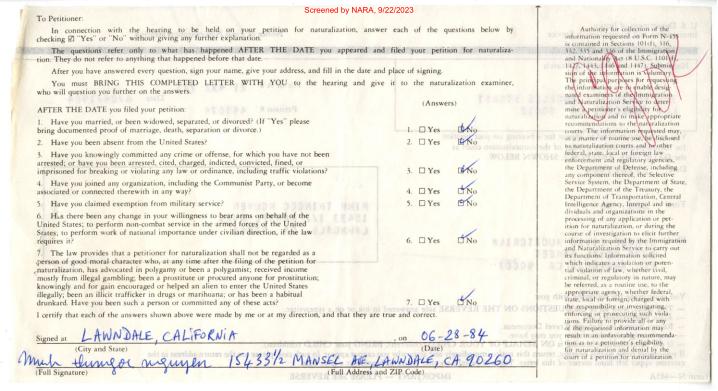 Screened by NARA, 9/22/2023
To Petitioner:
In connection with the hearing to be held on your petition for naturalization, answer each of the questions below by
checking ☑ "Yes" or "No" without giving any further explanation.
The questions refer only to what has happened AFTER THE DATE you appeared and filed your petition for naturaliza-
tion. They do not refer to anything that happened before that date.
After you have answered every question, sign your name, give your address, and fill in the date and place of signing.
You must BRING THIS COMPLETED LETTER WITH YOU to the hearing and give it to the naturalization examiner,
who will question you on the answers.
(Answers)
AFTER THE DATE you filed your petition:
1. Have you married, or been widowed, separated, or divorced? (If "Yes" please
bring documented proof of marriage, death, separation or divorce.)
1. ☐ Yes ☑ No
2. Have you been absent from the United States?
2. ☐ Yes ☑ No
3. Have you knowingly committed any crime or offense, for which you have not been
arrested; or have you been arrested, cited, charged, indicted, convicted, fined, or
imprisoned for breaking or violating any law or ordinance, including traffic violations?
3. ☐ Yes ☑ No
4. Have you joined any organization, including the Communist Party, or become
associated or connected therewith in any way?
4. ☐ Yes ☑ No
5. Have you claimed exemption from military service?
5. ☐ Yes ☑ No
6. Has there been any change in your willingness to bear arms on behalf of the
United States; to perform non-combat service in the armed forces of the United
States; to perform work of national importance under civilian direction, if the law
requires it?
6. ☐ Yes ☑ No
7. The law provides that a petitioner for naturalization shall not be regarded as a
person of good moral character who, at any time after the filing of the petition for
naturalization, has advocated in polygamy or been a polygamist; received income
mostly from illegal gambling; been a prostitute or procured anyone for prostitution;
knowingly and for gain encouraged or helped an alien to enter the United States
illegally; been an illicit trafficker in drugs or marihuana; or has been a habitual
drunkard. Have you been such a person or committed any of these acts?
7. ☐ Yes ☑ No
I certify that each of the answers shown above were made by me or at my direction, and that they are true and correct.
Signed at LAWNDALE, CALIFORNIA, on 06-28-84
(City and State) (Date)
nguyen 15433 1/2 MANSEL AE, LAWNDALE, CA. 90260
(Full Signature) (Full Address and ZIP Code)
Authority for collection of the
information requested on Form N-445
is contained in Sections 101(f), 316,
332, 335 and 336 of the Immigration
and Nationality Act (8 U.S.C. 1101(f)
1427, 1443, 1446 and 1447). Submission
of the information is voluntary.
The principal purposes for requesting
the information are to enable desig-
nated examiners of the Immigration
and Naturalization Service to deter-
mine a petitioner's eligibility for
naturalization and to make appropriate
recommendations to the naturalization
courts. The information requested may,
as a matter of routine use, be disclosed
to naturalization courts and to other
federal, state, local or foreign law
enforcement and regulatory agencies,
the Department of Defense, including
any component thereof, the Selective
Service System, the Department of State,
the Department of the Treasury, the
Department of Transportation, Central
Intelligence Agency, Interpol and in-
dividuals and organizations in the
processing of any application or pet-
ition for naturalization, or during the
course of investigation to elicit further
information required by the Immigration
and Naturalization Service to carry out
its functions. Information solicited
which indicates a violation or poten-
tial violation of law, whether civil,
criminal, or regulatory in nature, may
be referred, as a routine use, to the
appropriate agency, whether federal,
state, local or foreign, charged with
the responsibility of investigating,
enforcing or prosecuting such viola-
tions. Failure to provide all or any
of the requested information may
result in an unfavorable recommenda-
tion as to a petitioner's eligibility
for naturalization and denial by the
court of a petition for naturalization.